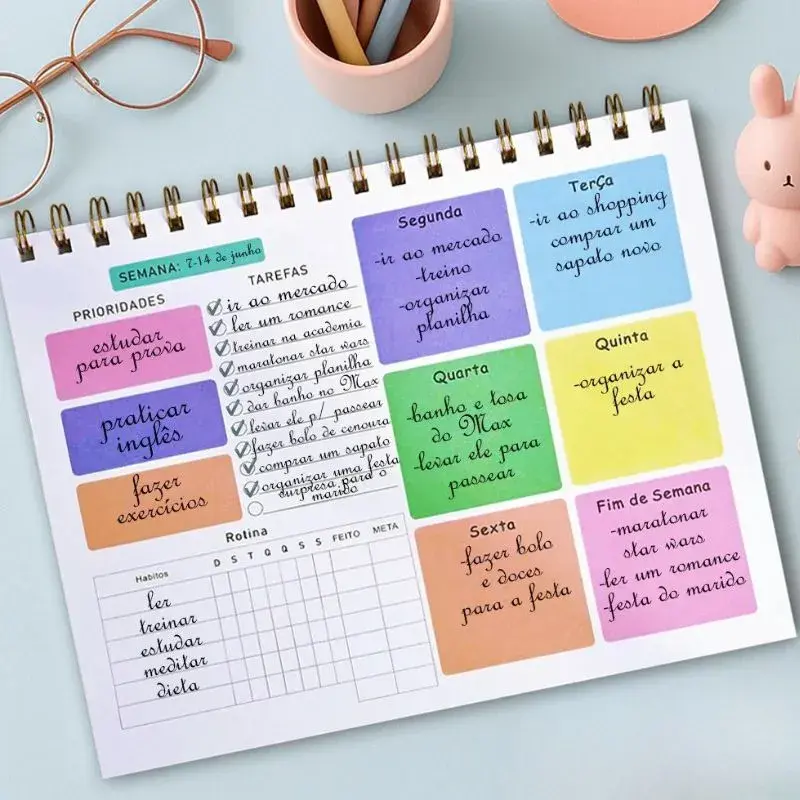 SEMANA: 7-14 de junho
PRIORIDADES
estudar
para prova
praticar
inglês
fazer
exercícios
TAREFAS
ir ao mercado
ler um romance
treinar na academia
maratonar star wars
organizar planilha
dar banho no Max
levar ele p/ passear
fazer bolo de cenoura
comprar um sapato
organizar uma festa
surpresa para o
marido
Segunda
-ir ao mercado
-treino
-organizar
planilha
Terça
-ir ao shopping
comprar um
sapato novo
Quarta
-banho e tosa
do Max
-levar ele para
passear
Quinta
-organizar a
festa
Sexta
-fazer bolo
e doces
para a festa
Fim de Semana
-maratonar
star wars
-ler um romance
-festa do marido
Rotina
Habitos D S T Q Q S S FEITO META
ler
treinar
estudar
meditar
dieta